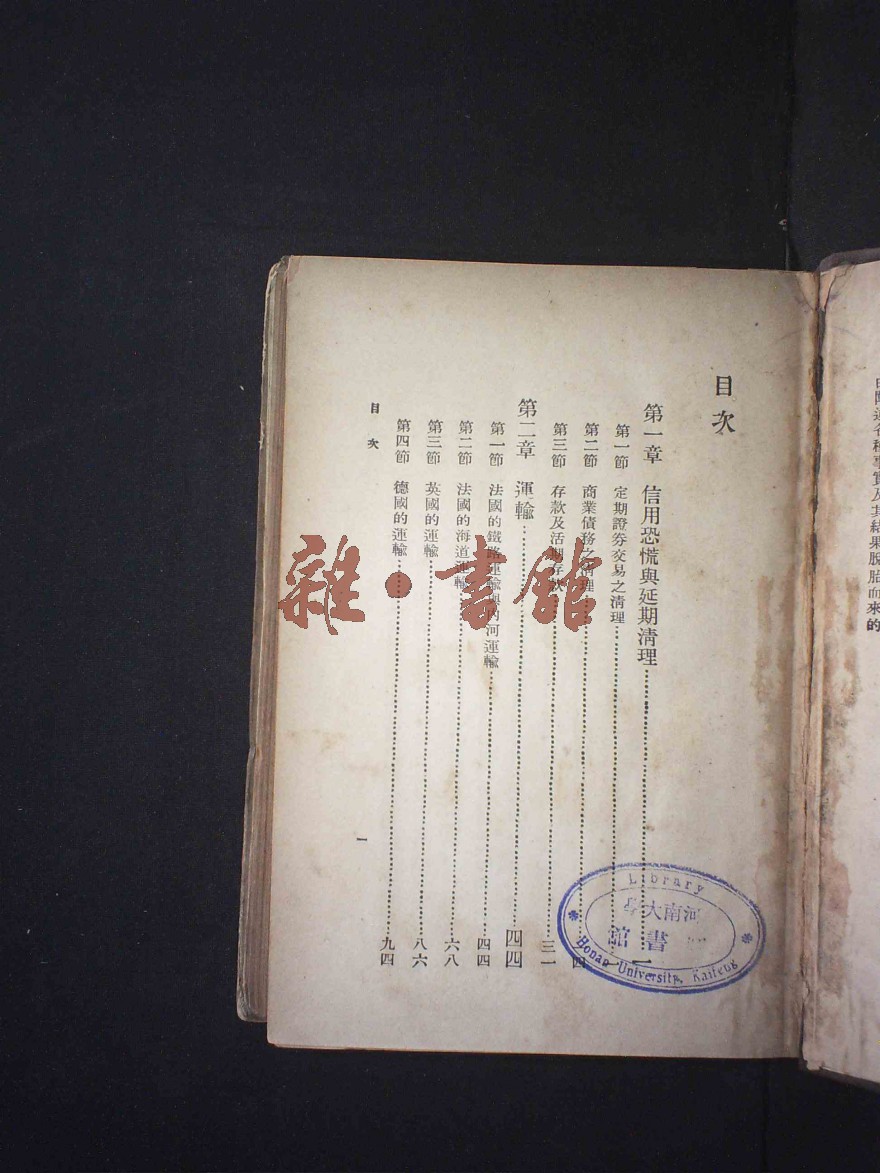 由陳述各種事實及其結果脫胎而來的
目次
第一章 信用恐慌與延期清理……一
第一節 定期證券交易之清理……一
第二節 商業債務之清理……四
第三節 存款及活期存款……三一
第二章 運輸……四四
第一節 法國的鐵路運輸與內河運輸……四四
第二節 法國的海道運輸……六八
第三節 英國的運輸……八六
第四節 德國的運輸……九四
目次
一
雜·書館
Library
河南大學
書館
Honan University, Kaifeng